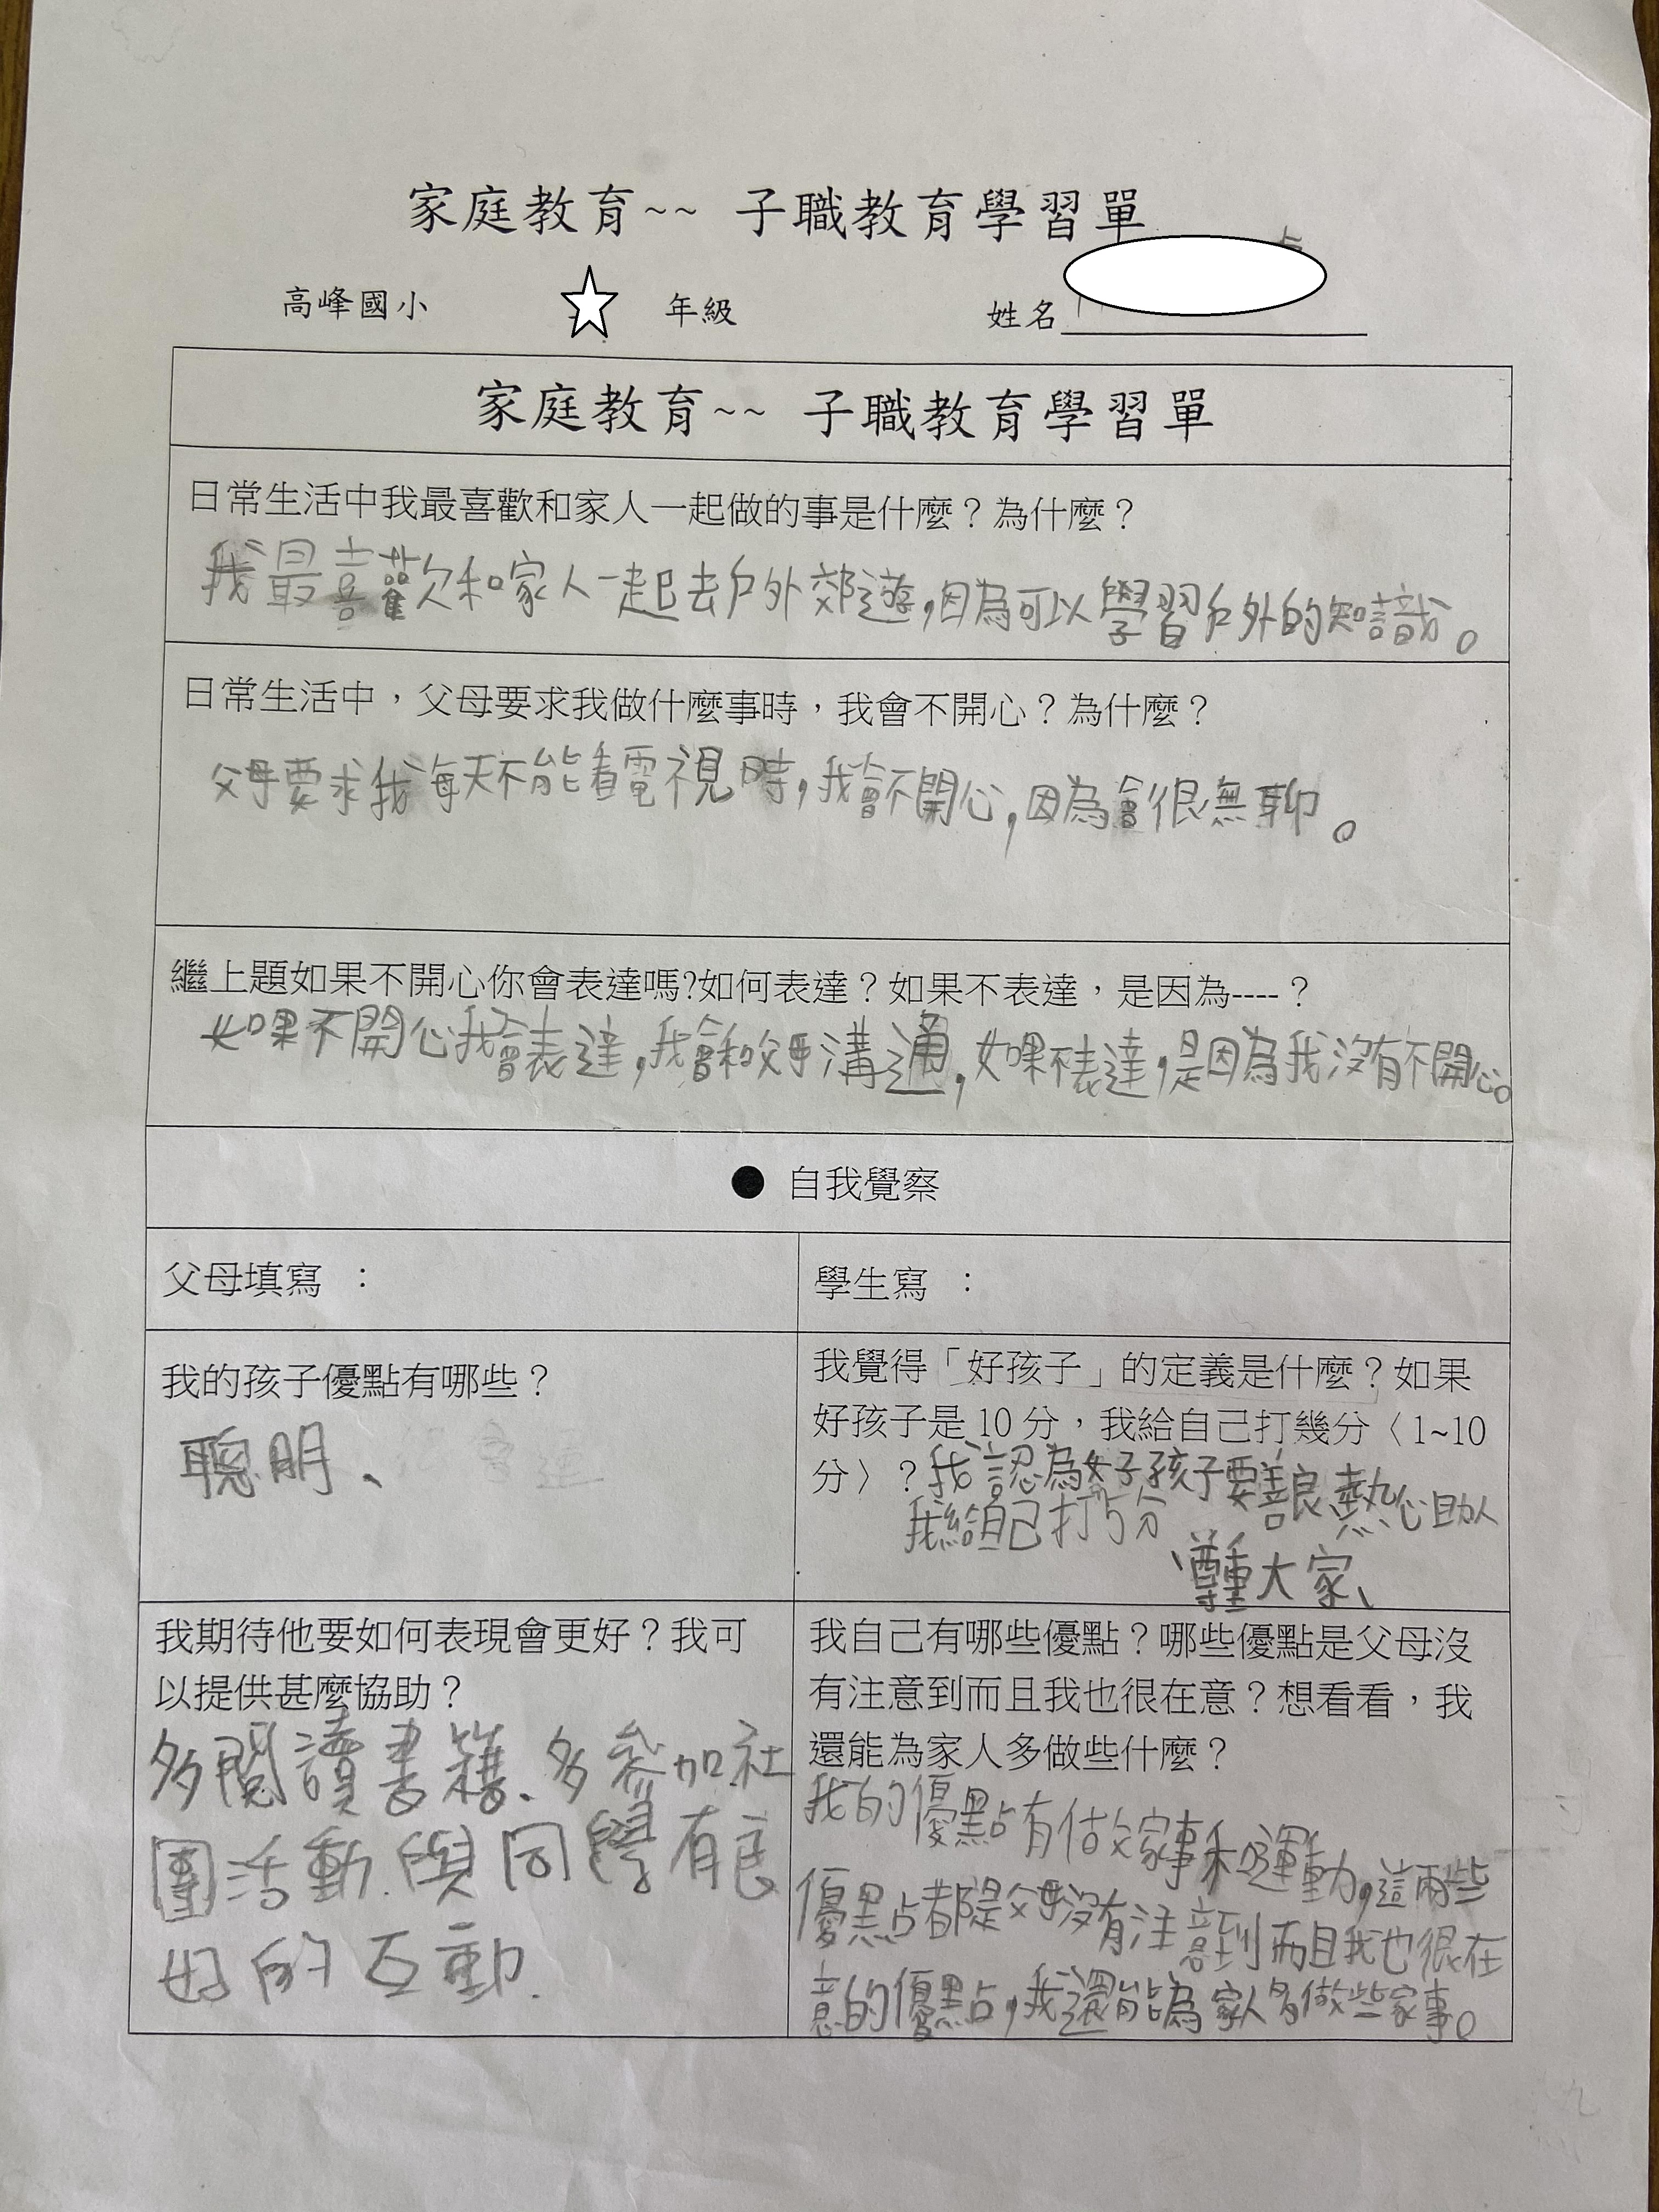 家庭教育~~ 子職教育學習單
高峰國小 年級 姓名
家庭教育~~ 子職教育學習單
日常生活中我最喜歡和家人一起做的事是什麼？為什麼？
我最喜歡和家人一起去戶外郊遊,因為可以學習戶外的知識。
日常生活中，父母要求我做什麼事時，我會不開心？為什麼？
父母要求我每天不能看電視時,我會不開心,因為會很無聊。
繼上題如果不開心你會表達嗎?如何表達？如果不表達，是因為----？
如果不開心我會表達,我會和父母溝通,如果不表達,是因為我沒有不開心。
● 自我覺察
父母填寫 ：
學生寫 ：
我的孩子優點有哪些？
聰明、
我覺得「好孩子」的定義是什麼？如果
好孩子是 10 分，我給自己打幾分〈 1~10
分〉？我認為好孩子要善良、熱心助人
、尊重大家、
我給自己打5分
我期待他要如何表現會更好？我可
以提供甚麼協助？
多閱讀書籍、多參加社
團活動.與同學有良
好的互動.
我自己有哪些優點？哪些優點是父母沒
有注意到而且我也很在意？想看看，我
還能為家人多做些什麼？
我的優點有做家事和運動,這兩些
優點都是父母沒有注意到而且我也很在
意的優點,我還能為家人多做些家事。